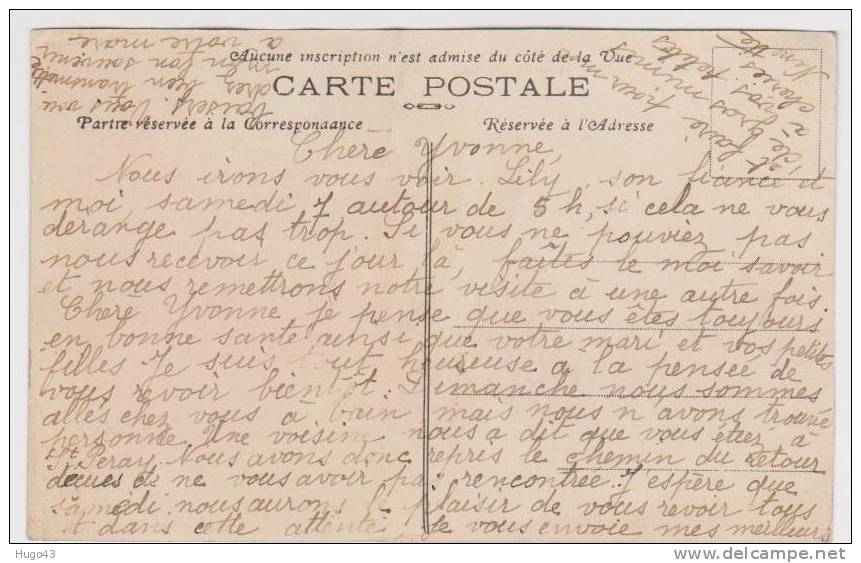 Aucune inscription n'est admise du côté de la Vue
CARTE POSTALE
Partie réservée à la Correspondance
Réservée à l'Adresse
Cherè Yvonne,
Nous irons vous voir. Lily, son fiance et
moi samedi 7 autour de 5 h, si cela ne vous
derange pas trop. Si vous ne pouviez pas
nous recevoir ce jour là, faîtes le moi savoir
et nous remettrons notre visite à une autre fois
Cherè Yvonne je pense que vous êtes toujours
en bonne sante ainsi que votre mari et vos petites
filles. Je suis tout heureuse a la pensee de
vous revoir bientôt. Dimanche nous sommes
alles chez vous à bain, mais nous n avons trouve
personne. Une voisine nous a dit que vous étiez à
St Peray. Nous avons donc repris le chemin du retour
decues de ne vous avoir pas rencontree. J'espère que
samedi nous aurons le plaisir de vous revoir tous
et dans cette attente je vous envoie mes meilleurs
baisers. Vous
bien transmettre
mon bon souvenir
a votre mare
et faire pour moi
de gros mimes
à vos petites
cheries.
Ninette
Hugo43
delcampe.net